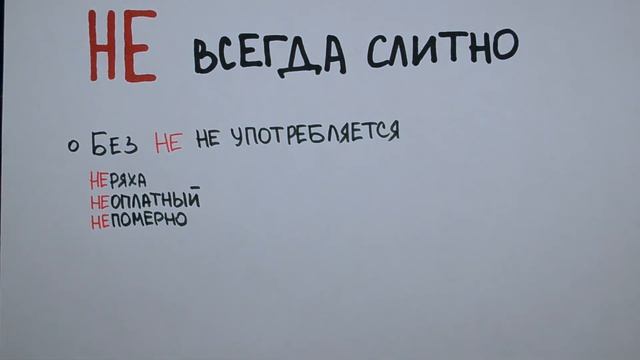 НЕ ВСЕГДА СЛИТНО
БЕЗ НЕ НЕ УПОТРЕБЛЯЕТСЯ
НЕРЯХА
НЕОПЛАТНЫЙ
НЕПОМЕРНО